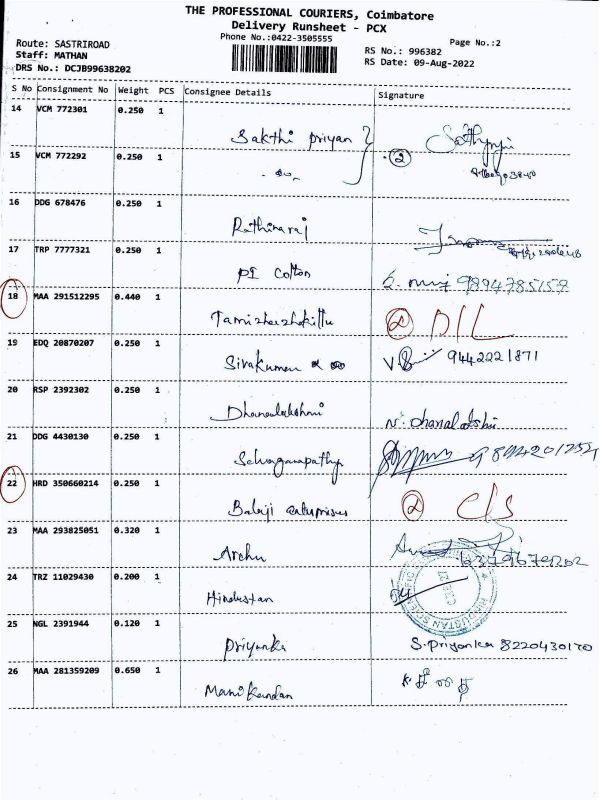 THE PROFESSIONAL COURIERS, Coimbatore
Delivery Runsheet - PCX
Phone No.:0422-3505555
Page No.:2
Route: SASTRIROAD
Staff: MATHAN
RS No.: 996382
DRS No.: DCJB99638202
RS Date: 09-Aug-2022
S No Consignment No Weight PCS Consignee Details Signature
14 VCM 772301 0.250 1
Sakthi priyan
15 VCM 772292 0.250 1
2
16 DDG 678476 0.250 1
Rathinaraj
17 TRP 7777321 0.250 1
PI Cotton 9894785159
18 MAA 291512295 0.440 1
2 D/L
19 EDQ 20870207 0.250 1
Sivakumar 9442221871
20 RSP 2392302 0.250 1
Dhanalakshmi
21 DDG 4430130 0.250 1
22 HRD 350660214 0.250 1
Balaji enterprises 2 C/S
23 MAA 293825051 0.320 1
Archu
24 TRZ 11029430 0.200 1
Hindustan
HINDUSTAN SCIENTIFIC
25 NGL 2391944 0.120 1
Priyanka S. Priyanka 8220430170
26 MAA 281359209 0.650 1
Manikandan